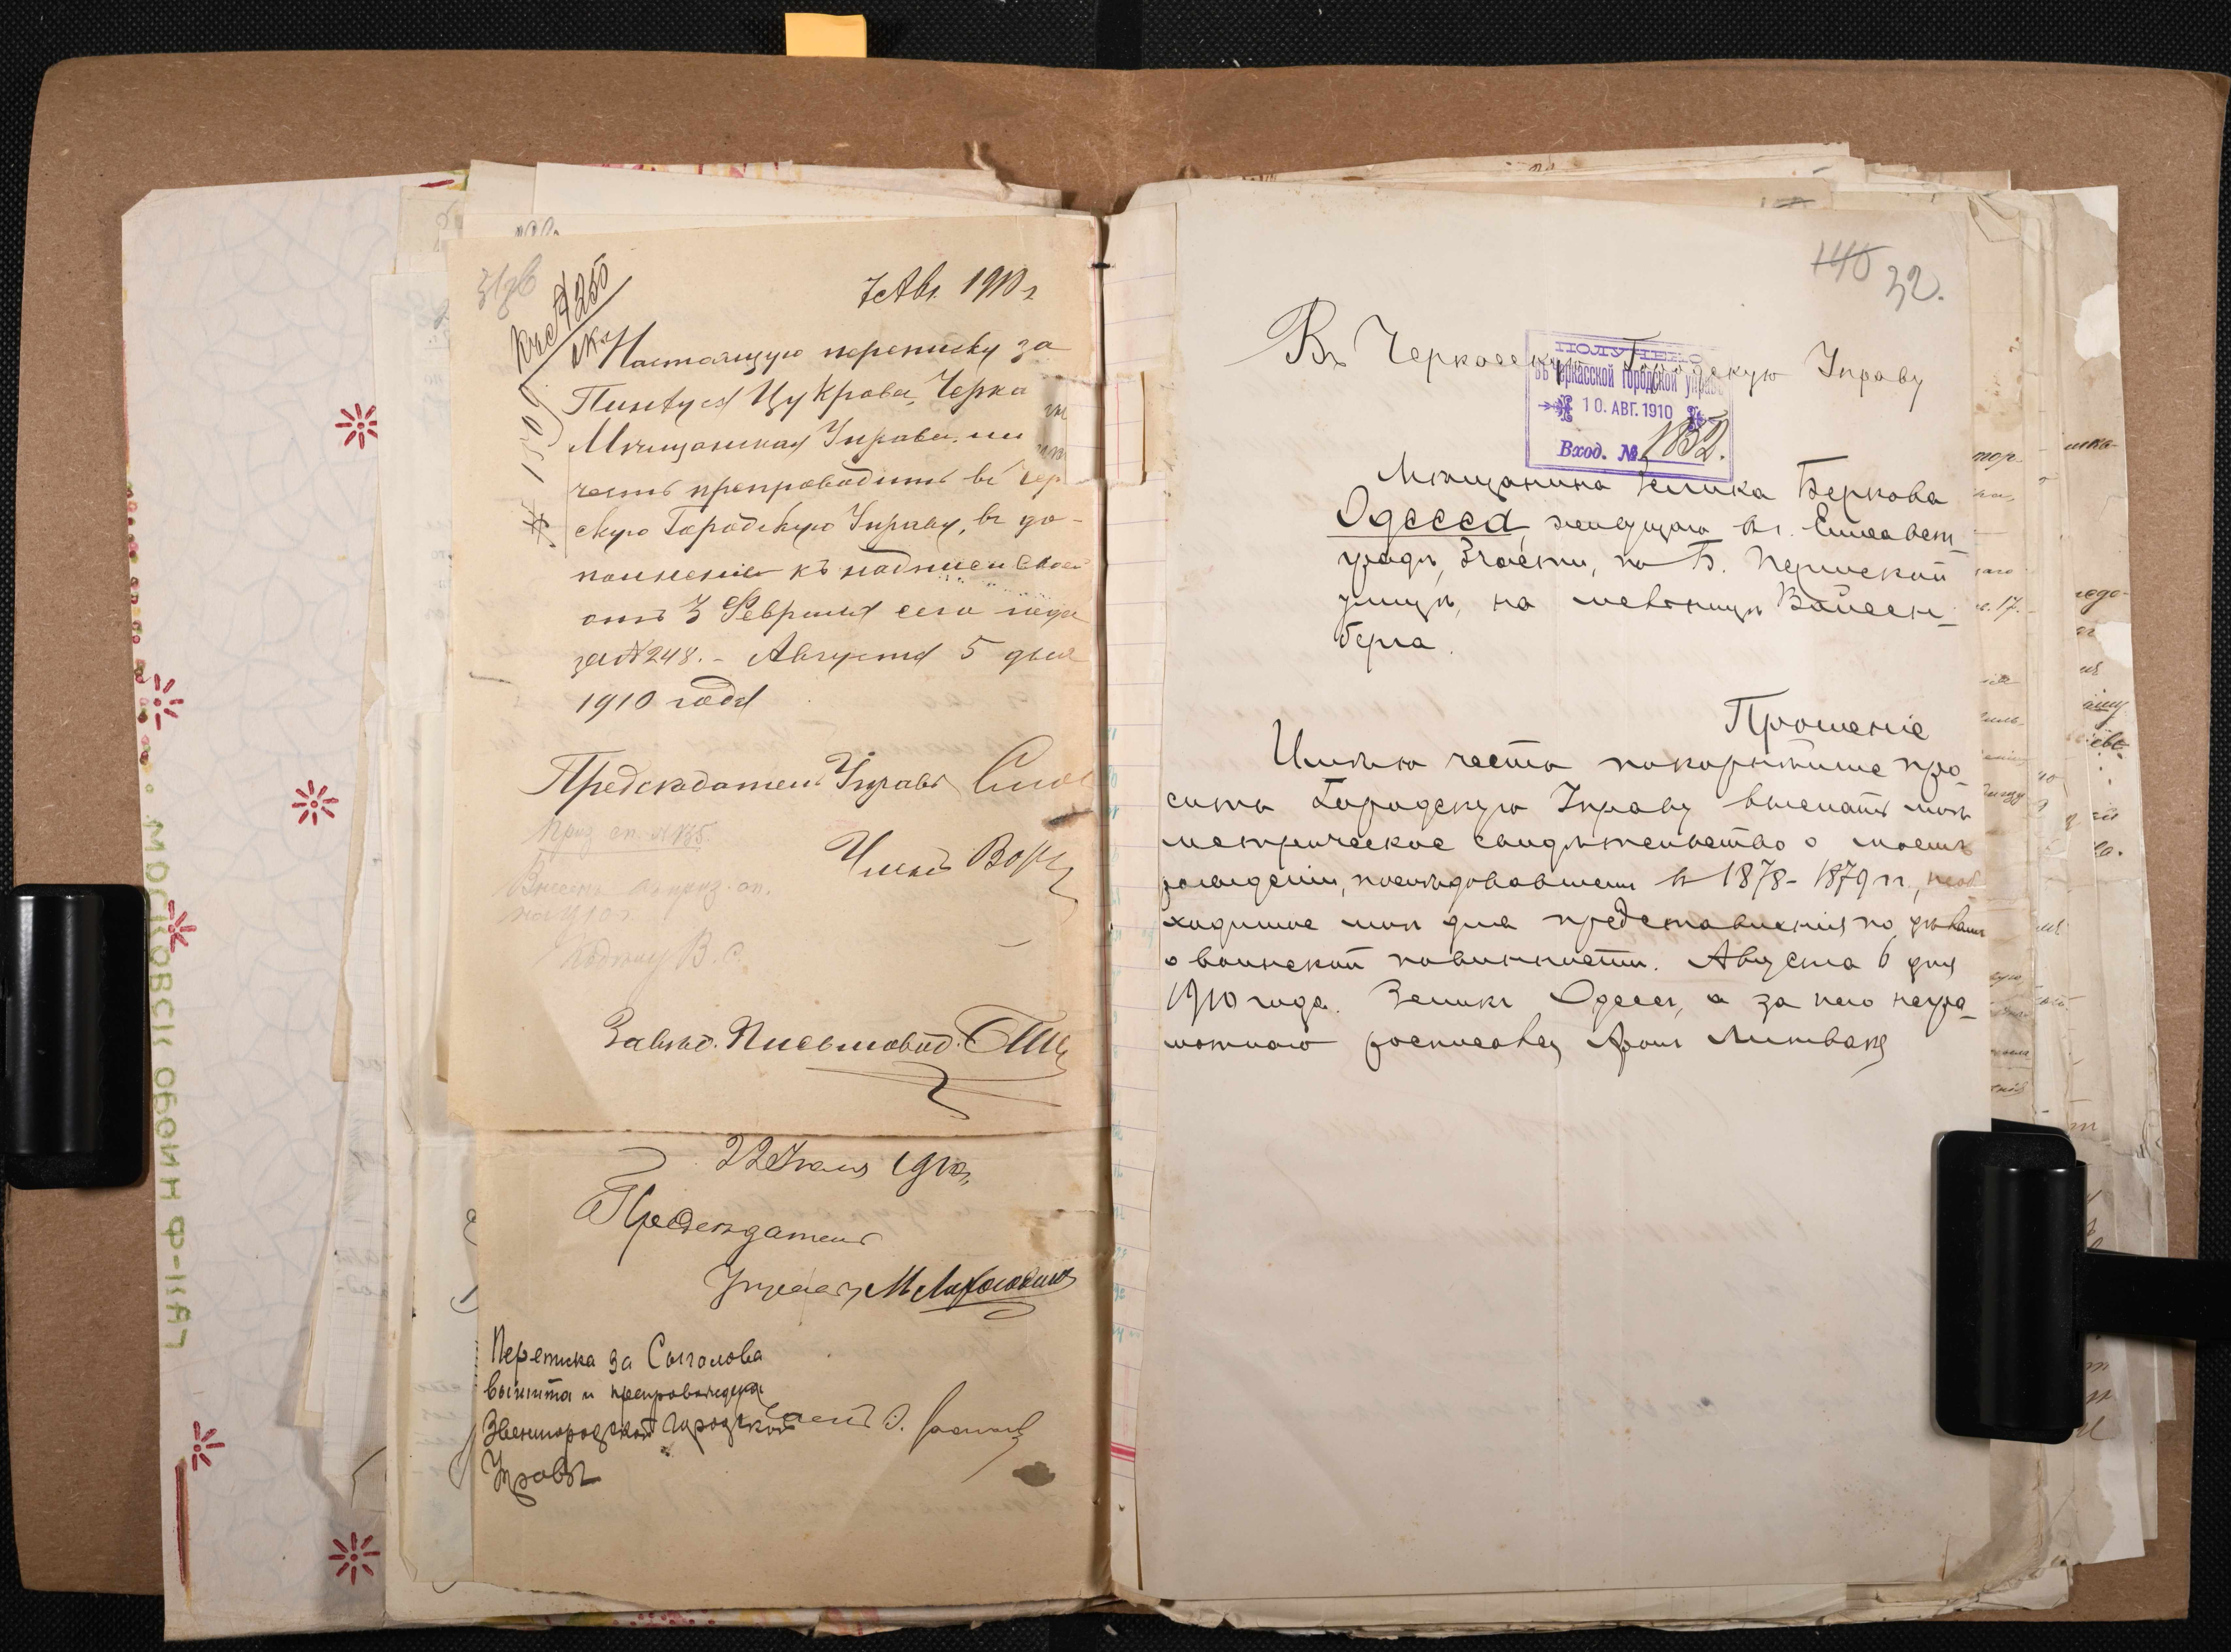 7 Авг. 1910 г
№ 1509
Настоящую переписку за
Пинхуса Цукрова, Черка
Мѣщанская Управа, им
честь препроводить въ Чер
скую Городскую Управу, въ до-
полненіе къ надписи своей
отъ 3 Февраля сего года
за № 248. - Августа 5 дня
1910 года
Предсѣдатель Управы
Приз. сп. № 135.
Внесенъ въ приз. сп.
на 1910 г.
Завѣд. Письмовод.
22 Іюля 1910 г.
Предсѣдатель
Управы
Переписка за Соголова
вынята и препровождена
Звенигородской Городской
Управѣ
МОСКОВСК ОБОИН Ф-КА
140 32.
Въ Черкасскую Городскую Управу
ПОЛУЧЕНО
въ Черкасской городской управѣ
10. АВГ. 1910
Вход. № 1852.
Мѣщанина Зелика Беркова
Одесса, живущаго въ г. Елисавет-
градѣ, 3 части, по Б. Пермской
улицѣ, на мельницѣ Вайсен-
берга.
Прошеніе
Имѣю честь покорнѣйше про-
сить Городскую Управу выслать мнѣ
метрическое свидѣтельство о моемъ
рожденіи, послѣдовавшемъ въ 1878-1879 гг., необ
ходимое мнѣ для представленія по дѣламъ
о воинской повинности. Августа 6 дня
1910 года. Зеликъ Одессъ, а за него негра-
мотнаго росписался Аронъ Литвакъ